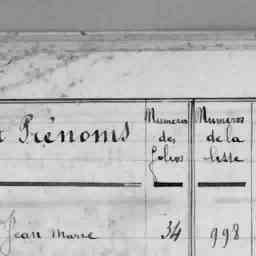 t Prénoms
Numéros des folios
Numéros de la liste
Jean Marie 34 998